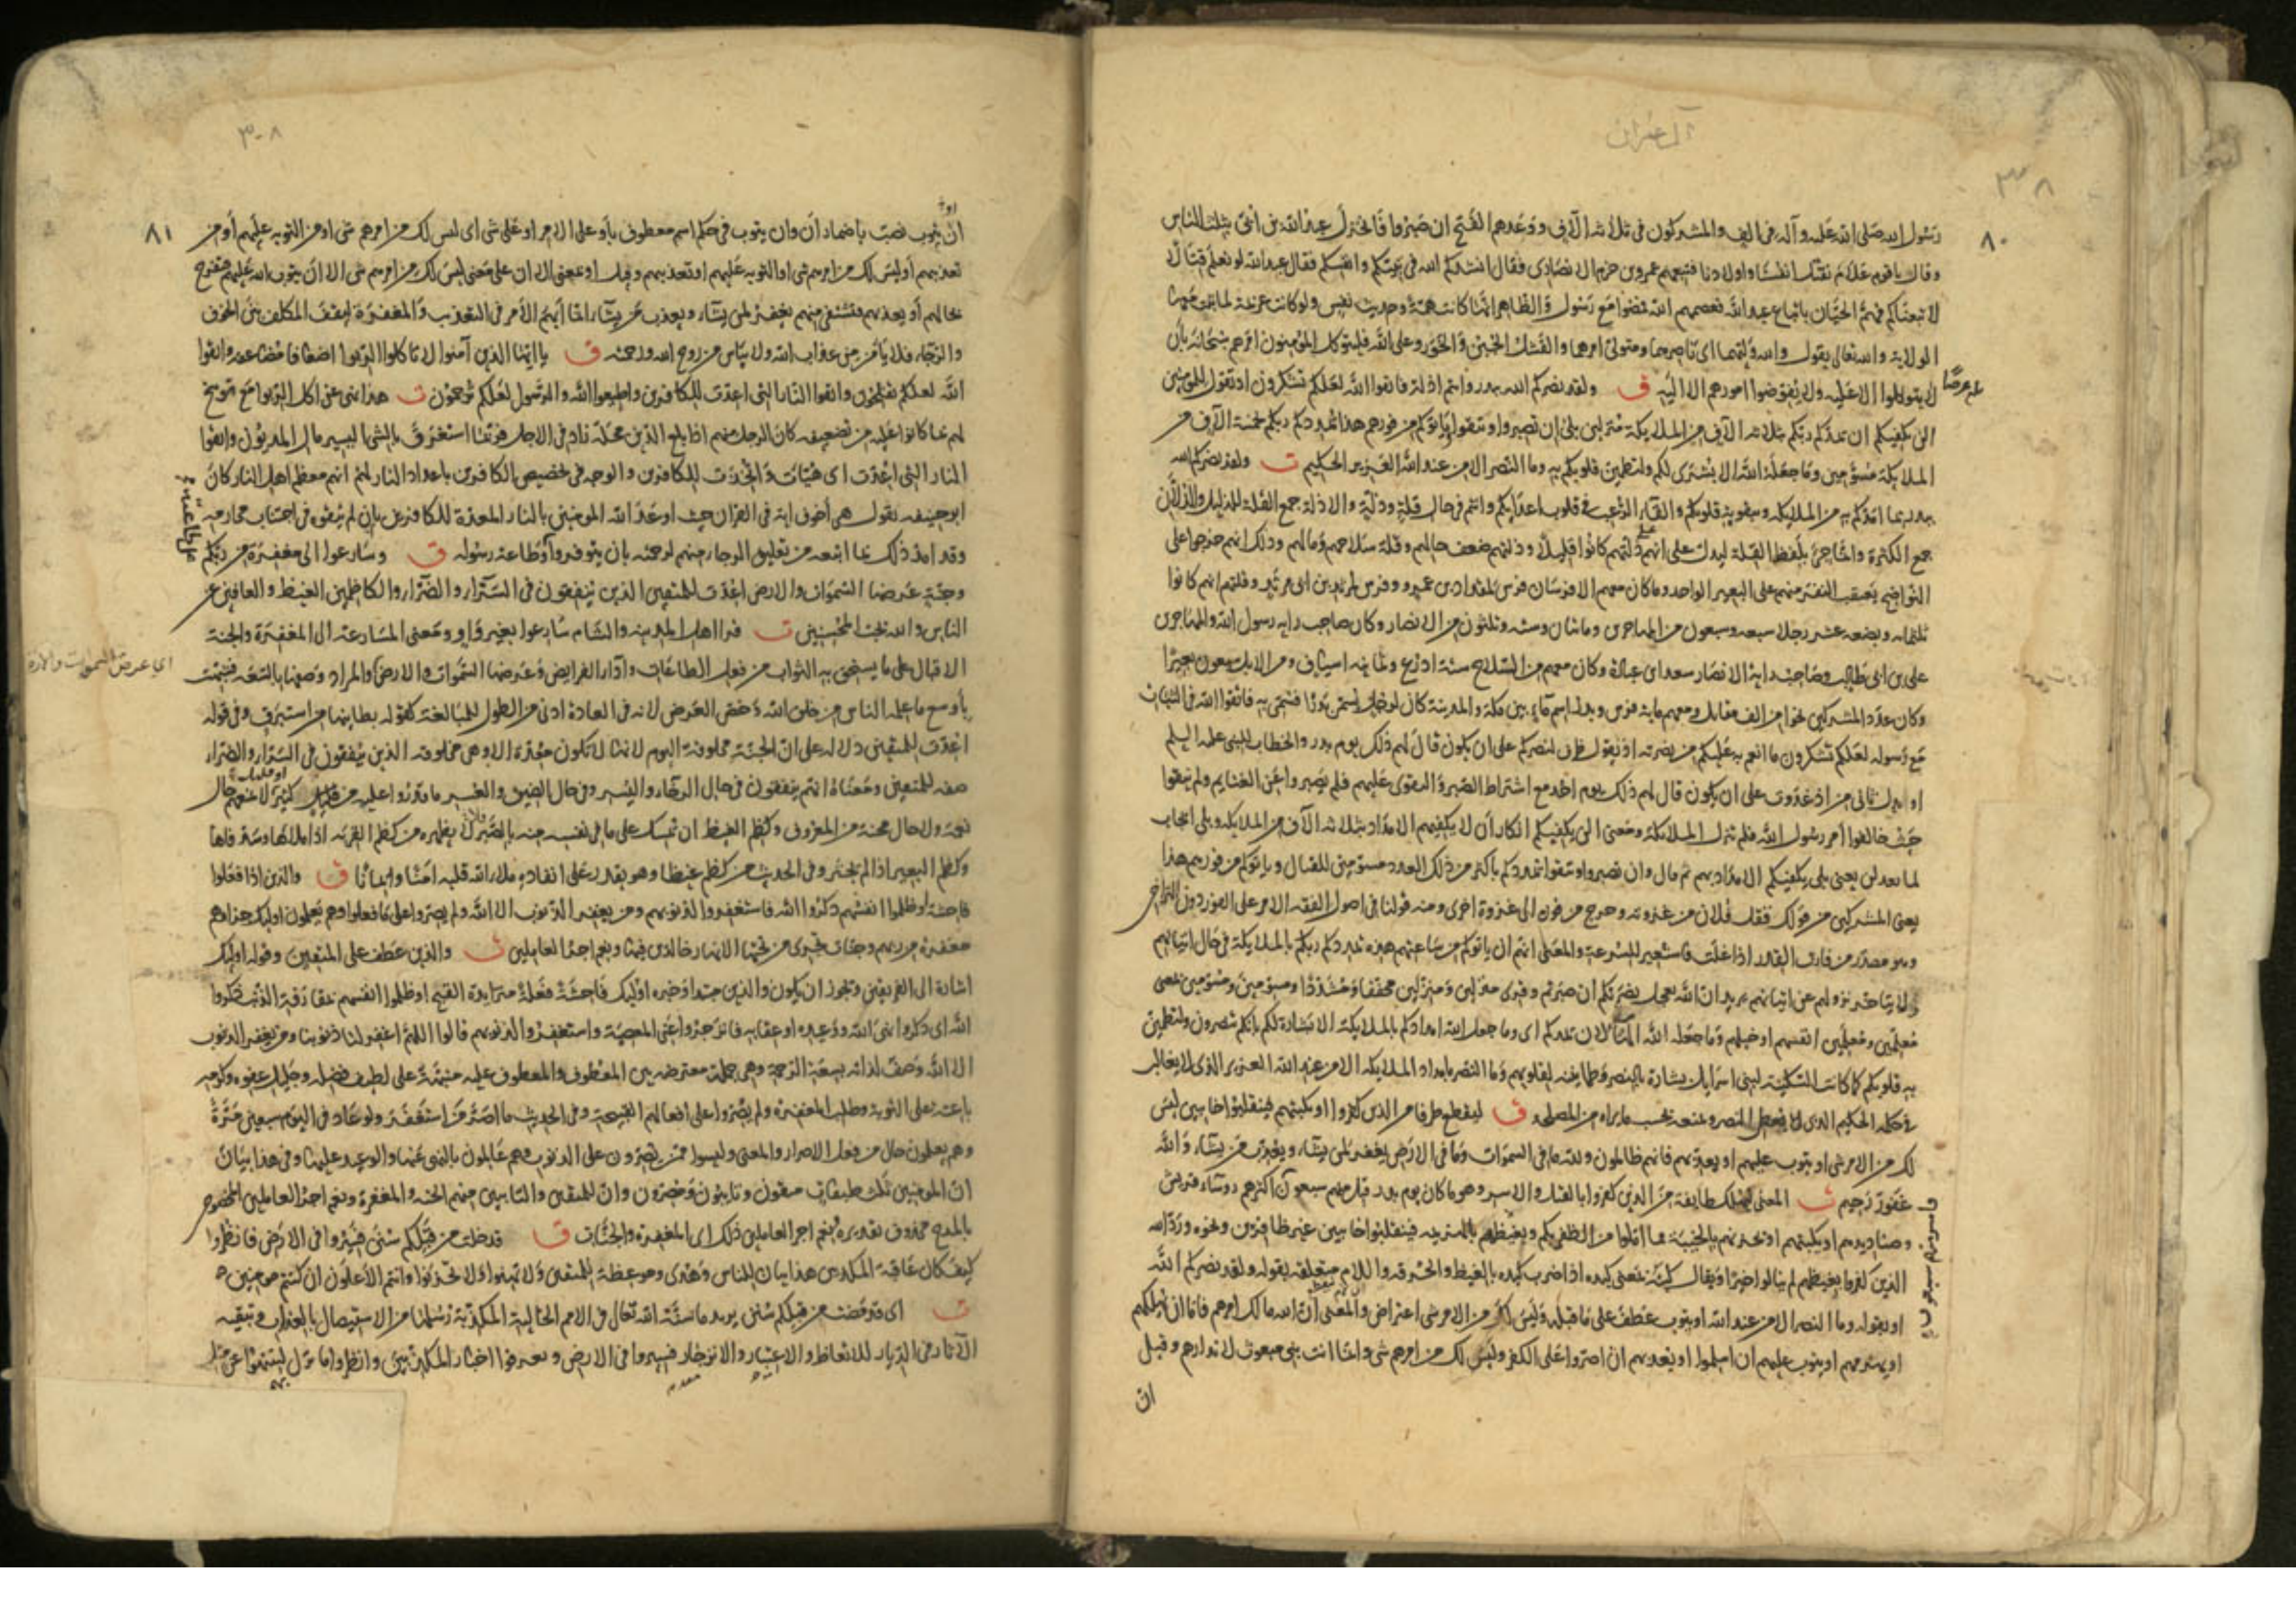 آل عمران
٣٨
٨٠
رسول الله صلى الله عليه وآله في الف والمشركون في ثلاثة آلاف ووعدهم الفتح ان صبروا فانخزل عبد الله بن ابي بثلث الناس
وقال يا قوم علام نقتل انفسنا واولادنا فتبعهم عمرو بن حزم الانصاري فقال انشدكم الله في نبيكم وانفسكم فقال عبد الله لو نعلم قتالا
لاتبعناكم فهم الحيان باتباع عبد الله فعصمهم الله فمضوا مع رسول والظاهر انها كانت همة وحديث نفس ولو كانت عزيمة لما ثبتت معها
الولاية والله تعالى يقول والله وليهما اى ناصرهما ومتولى امرهما والفشل الجبن والخور وعلى الله فليتوكل المؤمنون امرهم سبحانه بان
لا يتوكلوا الا عليه ولا يفوضوا امورهم الا اليه ق ولقد نصركم الله ببدر وانتم اذلة فاتقوا الله لعلكم تشكرون اذ تقول للمؤمنين
الن يكفيكم ان يمدكم ربكم بثلاثة الآف من الملايكة منزلين بلى ان تصبروا وتتقوا وياتوكم من فورهم هذا يمددكم ربكم بخمسة الآف من
الملايكة مسومين وما جعله الله الا بشرى لكم ولتطمين قلوبكم به وما النصر الا من عند الله العزيز الحكيم ت ولقد نصركم الله
ببدر بما امدكم به من الملايكة وبتقوية قلوبكم والقاء الرعب في قلوب اعدايكم وانتم في حال قلة وذلة والاذلة جمع القلة للذليل والذلان
جمع الكثرة وانما جئ بلفظ القلة ليدل على انهم على ذلتهم كانوا قليلا وذلتهم ضعف حالهم وقلة سلاحهم ومالهم وذلك انهم خرجوا على
النواضح يعتقب النفر منهم على البعير الواحد وما كان معهم الا فرسان فرس للمقداد بن عمرو وفرس لمرثد بن ابى مرثد وقلتهم انهم كانوا
ثلثمايه وبضعه عشر رجلا سبعه وسبعون من المهاجرين ومايتان وسته وثلثون من الانصار وكان صاحب رايه رسول الله والمهاجرين
على بن ابى طالب وصاحب رايه الانصار سعد ابن عبادة وكان معهم من السلاح سته ادرع وثمانيه اسياف ومن الابل سبعون بعيرا
وكان عدد المشركين نحوا من الف مقاتل ومعهم مايه فرس وبدر اسم ماء بين مكة والمدينة كان لرجل يسمى بدرا فسمى به فاتقوا الله في الثبات
مع رسوله لعلكم تشكرون ما انعم به عليكم من نصرته اذ تقول ظرف لنصركم على ان يكون قال لهم ذلك يوم بدر والخطاب للنبي عليه السلم
او بدل ثاني من اذ غدوت على ان يكون قال لهم ذلك يوم احد مع اشتراط الصبر والتقوى عليهم فلم يصبروا عن الغنايم ولم يتقوا
حيث خالفوا امر رسول الله فلم تنزل الملايكة ومعنى الن يكفيكم انكار ان لا يكفيهم الامداد بثلاثه آلاف من الملايكه وبلى ايجاب
لما بعد لن يعنى بلى يكفيكم الامداد بهم ثم قال وان تصبروا وتتقوا يمددكم باكثر من ذلك العدد مسومين للقتال وياتوكم من فورهم هذا
يعنى المشركين من قولك قفل فلان من غزوته وخرج من فوره الى غزوة اخرى ومنه قولنا في اصول الفقه الامر على الفور دون التراخي
وهو مصدر من فارت القدر اذا غلت فاستعير للسرعة والمعنى انهم ان ياتوكم من ساعتهم هذه يمددكم ربكم بالملايكة في حال اتيانهم
ولا يتاخر نزولهم عن اتيانهم يريد ان الله يعجل نصرتكم ان صبرتم وقرى منزلين ومنزلين مخففا ومشددا ومسومين ومسومين بمعنى
معلمين ومعلمين انفسهم او خيلهم وما جعله الله الهاء لان يمدكم اى وما جعل الله امدادكم بالملايكة الا بشارة لكم بانكم تنصرون ولتطمئن
به قلوبكم كما كانت السكينة لبنى اسرايل بشارة بالنصر وطمانينه لقلوبهم وما النصر بامداد الملايكه الا من عند الله العزيز الذى لا يغالب
في حكمه الحكيم الذى يعطى النصر ويمنعه بحسب ما يراه من المصلحه ق ليقطع طرفا من الذين كفروا او يكبتهم فينقلبوا خايبين ليس
لك من الامر شى او يتوب عليهم او يعذبهم فانهم ظالمون ولله ما في السموات وما في الارض يغفر لمن يشاء ويعذب من يشاء والله
غفور رحيم ت المعنى ليهلك طايفة من الذين كفروا بالقتل والاسر وهو ما كان يوم بدر قتل منهم سبعون اكثرهم روساء قريش
وصناديدهم او يكبتهم او يخزيهم بالخيبة مما املوا من الظفر بكم ويغيظهم بالهزيمه فينقلبوا خايبين غير ظافرين ونحوه ورد الله
الذين كفروا بغيظهم لم ينالوا خيرا ويقال كبته بمعنى كبده اذا ضرب كبده بالغيظ والحرقه واللام متعلقة بقوله ولقد نصركم الله
او بقوله وما النصر الا من عند الله او يتوب عطف على ما قبله وليس لك من الامر شى اعتراض والمعنى ان الله مالك امرهم فاما ان يهلكهم
او يهزمهم او يتوب عليهم ان اسلموا او يعذبهم ان اصروا على الكفر وليس لك من امرهم شى وانما انت نبى مبعوث لانذارهم وقيل
ان
٣٠٨
٨١
ان يتوب نصب باضمار ان وان يتوب في حكم اسم معطوف باو على الامر او على شى اى ليس لك من امرهم شى او من التوبه عليهم أو من
تعذيبهم أو ليس لك من امرهم شى او التوبه عليهم او تعذيبهم وقيل او بمعنى الا ان على معنى ليس لك من امرهم شى الا ان يتوب الله عليهم فتفرح
بحالهم أو يعذبهم فتتشفى منهم يغفر لمن يشاء ويعذب من يشاء انما أبهم الأمر في التعذيب والمغفرة ليقف المكلف بين الخوف
والرجاء فلا يأمن من عذاب الله ولا يياس من روح الله ورحمته ق يا ايها الذين آمنوا لا تاكلوا الربوا اضعافا مضاعفه واتقوا
الله لعلكم تفلحون واتقوا النار التى اعدت للكافرين واطيعوا الله والرسول لعلكم ترحمون ت هذا نهى عن اكل الربوا مع توبيخ
لهم بما كانوا عليه من تضعيفه كان الرجل منهم اذا بلغ الدين محله زاد في الاجل فربما استغرق بالشى اليسير مال المديون واتقوا
النار التى اعدت اى هيأت واتخذت للكافرين والوجه في تخصيص الكافرين باعداد النار لهم انهم معظم اهل النار كان
ابو حنيفه يقول هى أخوف ايه في القرآن حيث اوعد الله المومنين بالنار المعدة للكافرين بان لم يتقوه في اجتناب محارمه
وقد امد ذلك بما اتبعه من تعليق الرجاء منهم لرحمته بان يتوفروا على طاعته وطاعة رسوله ق وسارعوا الى مغفرة من ربكم
وجنة عرضها السموات والارض اعدت للمتقين الذين ينفقون في السراء والضراء والكاظمين الغيظ والعافين عن
الناس والله يحب المحسنين ت قرا اهل المدينه والشام سارعوا بغير واو ومعنى المسارعة الى المغفرة والجنة
الاقبال على ما يستحق به الثواب من فعل الطاعات واداء الفرايض وعرضها السموات والارض والمراد وصفها بالسعة فشبهت
اى عرض السموات والارض
بأوسع ما علمه الناس من خلق الله وخص العرض لانه في العادة ادنى من الطول للمبالغة كقوله بطاينها من استبرق وفي قوله
اعدت للمتقين دلاله على ان الجنة مخلوقة اليوم لانها لا تكون معدة الا وهى مخلوقه الذين ينفقون في السراء والضراء
صفه للمتقين ومعناه انهم ينفقون في حال الرخاء واليسر وفي حال الضيق والعسر ما قدروا عليه من قليل او كثير لا تمنعهم حال
نعمة ولا حال محنة من المعروف وكظم الغيظ ان تمسك على ما في نفسه منه بالصبر ولا يظهره من كظم القربه اذا ملاها وسد فاها
وكظم البعير اذا لم يجتر وفي الحديث من كظم غيظا وهو يقدر على انفاذه ملا الله قلبه امنا وايمانا ق والذين اذا فعلوا
فاحشة او ظلموا انفسهم ذكروا الله فاستغفروا لذنوبهم ومن يغفر الذنوب الا الله ولم يصروا على ما فعلوا وهم يعلمون اوليك جزاوهم
مغفرة من ربهم وجنات تجرى من تحتها الانهار خالدين فيها ونعم اجر العاملين ت والذين عطف على المتقين وقوله اوليك
اشارة الى الفريقين ويجوز ان يكون والذين مبتدا وخبره اوليك فاحشة فعلة متزايدة القبح او ظلموا انفسهم بمقارفة الذنب ذكروا
الله اى ذكروا نهى الله ووعيده او عقابه فانزجروا عن المعصية واستغفروا لذنوبهم قالوا اللهم اغفر لنا ذنوبنا ومن يغفر الذنوب
الا الله وصف لذاته بسعة الرحمة وهى جملة معترضه بين المعطوف والمعطوف عليه منبهة على لطيف فضله وجليل عفوه وكرمه
باعثه على التوبة وطلب المغفرة ولم يصروا على افعالهم القبيحة وفي الحديث ما اصر من استغفر ولو عاد في اليوم سبعين مرة
وهم يعلمون حال من فعل الاصرار والمعنى وليسوا ممن يصرون على الذنوب وهم عالمون بالنهى عنها والوعيد عليها وفي هذا بيان
ان المومنين ثلث طبقات متقون وتايبون ومصرون وان للمتقين والتايبين منهم الجنه والمغفرة ونعم اجر العاملين المخصوص
بالمدح محذوف تقديره ونعم اجر العاملين ذلك اى المغفرة والجنات ق قد خلت من قبلكم سنن فسيروا في الارض فانظروا
كيف كان عاقبة المكذبين هذا بيان للناس وهدى وموعظة للمتقين ولا تهنوا ولا تحزنوا وانتم الأعلون ان كنتم مومنين
ت اى قد مضت من قبلكم سنن يريد ما سنه الله تعالى في الامم الخالية المكذبة رسلها من الاستيصال بالعذاب وتبقيه
الآثار في الديار للاتعاظ والاعتبار والانزجار فسيروا في الارض وتعرفوا اخبار المكذبين وانظروا ما نزل بهم لتنتهوا عن مثل